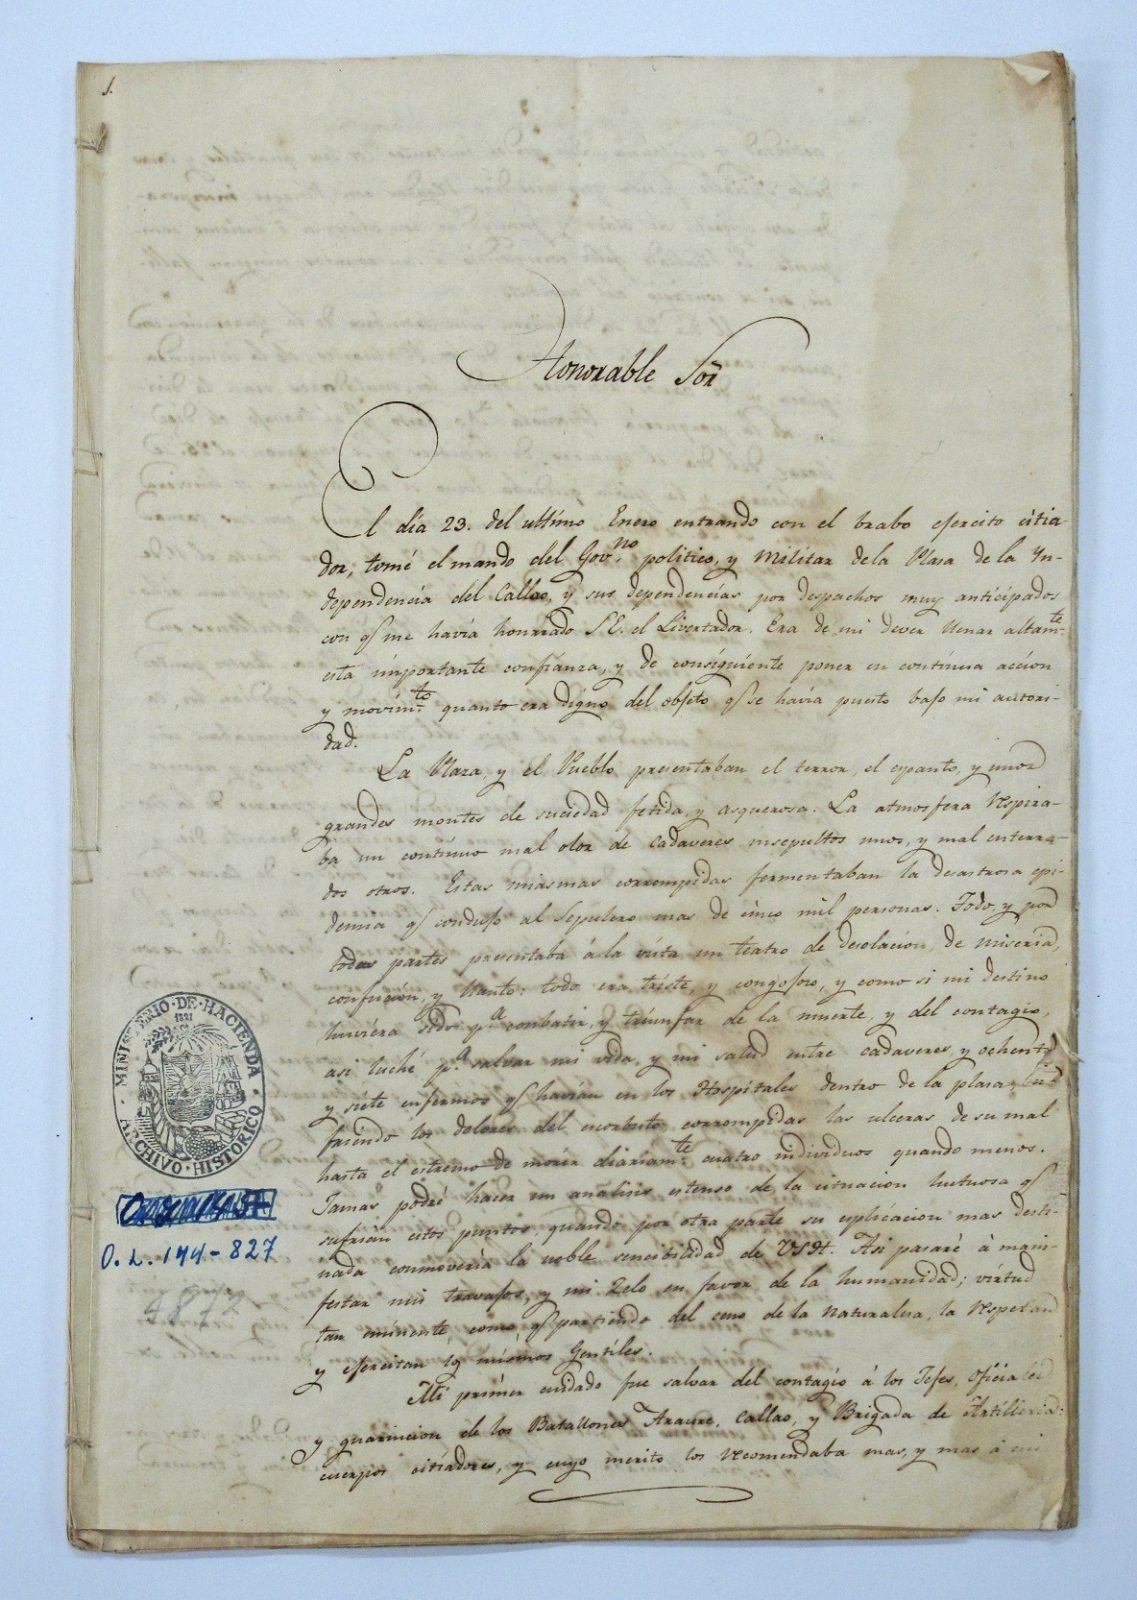 1.
Honorable Sor
El dia 23. del ultimo Enero entrando con el brabo ejercito citia-
dor, tomé el mando del Govno. politico, y Militar dela Plasa de la Yn-
dependencia del Callao, y sus dependencias por despachos muy anticipados
con q̃ me havia honrrado S.E. el Livertador. Era de mi dever llenar altamte.
esta importante confianza, y de consiguiente poner en continua accion
y movimto. quanto era digno del objeto q̃ se havia puesto bajo mi autori-
dad.
La Plaza, y el Pueblo, presentaban el terror, el espanto, y unos
grandes montes de suciedad fetida, y asquerosa. La atmosfera respira-
ba un continuo mal olor de cadaveres insepultos unos, y mal enterra-
dos otros. Estas miasmas corrompidas fermentaban la desastrosa epi-
demia q̃ condujo al sepulcro mas de cinco mil personas. Todo, y por
todas partes presentaba á la vista un teatro de desolacion, de miseria,
confucion, y llanto: todo era triste, y congojoso, y como si mi destino
huviera sido pa. conbatir, y triunfar de la muerte, y del contagio,
asi luché pa. salvar mi vida, y mi salud entre cadaveres, y ochenta
y siete enfermos q̃ havian en los Hospitales dentro de la plasa, su-
friendo los dolores del escorbuto corrompidas las ulceras de su mal
hasta el estremo de morir diariamte. cuatro individuos quando menos.
Jamas podré hacer un analisis estenso de la cituacion luctuosa q̃
sufrian estos puntos, quando por otra parte su esplicacion mas deste-
nada conmoveria la noble sencibilidad de VSH. Asi pasaré á mani-
festar mis travajos, y mi zelo en favor de la humanidad; virtud
tan eminente, como q̃ partiendo del ceno de la naturalesa, la respetan
y ejercitan los mismos Gentiles.
Mi primer cuidado fue salvar del contagio á los Jefes, oficiales
y guarnicion de los Batallones Araure, Callao, y Brigada de Artilleria:
cuerpos citiadores, y cuyo merito los recomendaba mas, y mas á mi
MINISTERIO·DE·HACIENDA
1821
ARCHIVO·HISTORICO
O.L. 144-827
4872